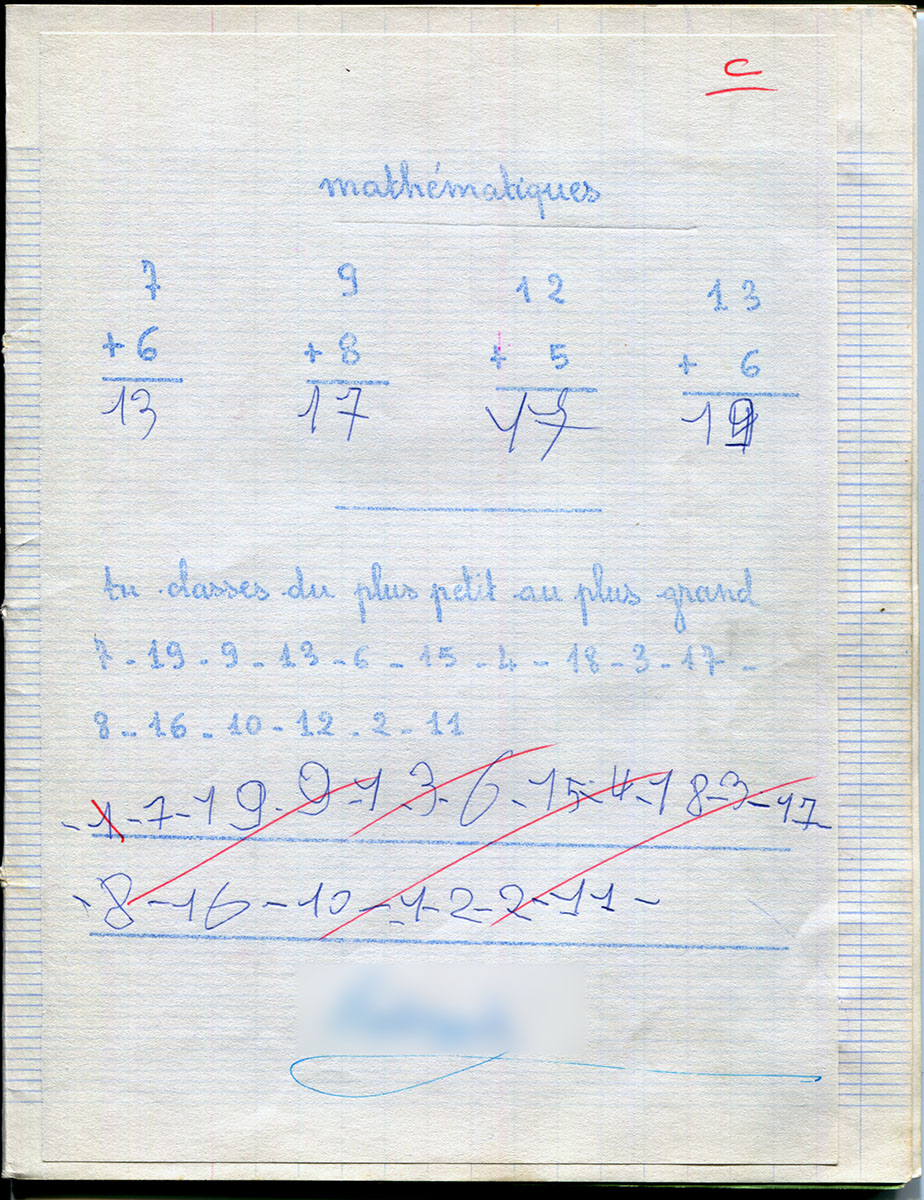 c
mathématiques
7 9 12 13
+ 6 + 8 + 5 + 6
13 17 17 19
tu classes du plus petit au plus grand
7 - 19 - 9 - 13 - 6 - 15 - 4 - 18 - 3 - 17 -
8 - 16 - 10 - 12 - 2 - 11
- 1 - 7 - 19 - 9 - 13 - 6 - 15 - 4 - 18 - 3 - 17 -
- 8 - 16 - 10 - 12 - 2 - 11 -